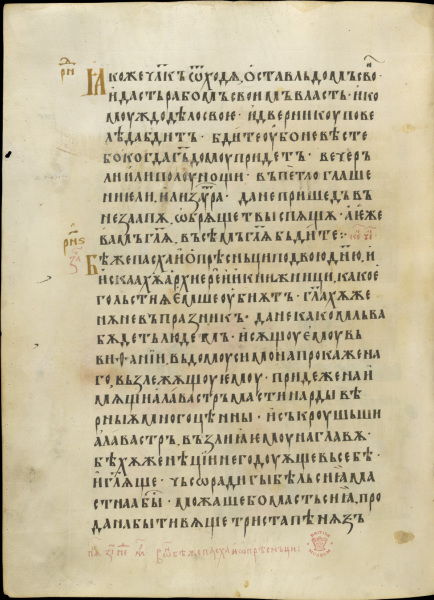 Ꙗкоже чл҃къ ѿходѧ, оставль домъ сво
и дастъ рабомъ своимъ власть · и ко
моуждо дѣло свое · и дверникоу пове
лѣ да бдитъ · бдите оубо не вѣсте
бо когда г҃ь домоу придетъ · вечеръ
ли или полоунощи · въ пѣтлоглаше
ние ли, или ꙁаꙋтра · да не пришедъ въ
неꙁаапѫ, ѡбрѧщетъ вы спѧщѫ · а еже
вамъ г҃лѧ, въсѣмъ г҃лѧ бъдите :·
Бѣ же пасха и ѡпрѣсньци по двою д҃нїю, и
искаахѫ архиерей и книжници, како е
го льстиѧ емше оубиѫтъ · г҃лахѫ же
нѫ не въ праꙁдникъ · да не како млъва
бѫдетъ людемъ · и сѫщоу емоу въ
виѳании, въ домоу симона прокажена
го, въꙁлежѧщоу емоу · приде жена и
мѫщи алавастръ масти нарды вѣ
рныѧ многоцѣнны · и съкроушьши
алавастръ, въꙁлиа емоу на главѫ ·
бѣхѫ же нѣции негодоуѧще въ себѣ ·
и г҃лѧще · чьсо ради гыбѣль сиа ма
стнаа бы · можаше бо масть сиа, про
дана быти вѧще триста пѣнѧꙁь